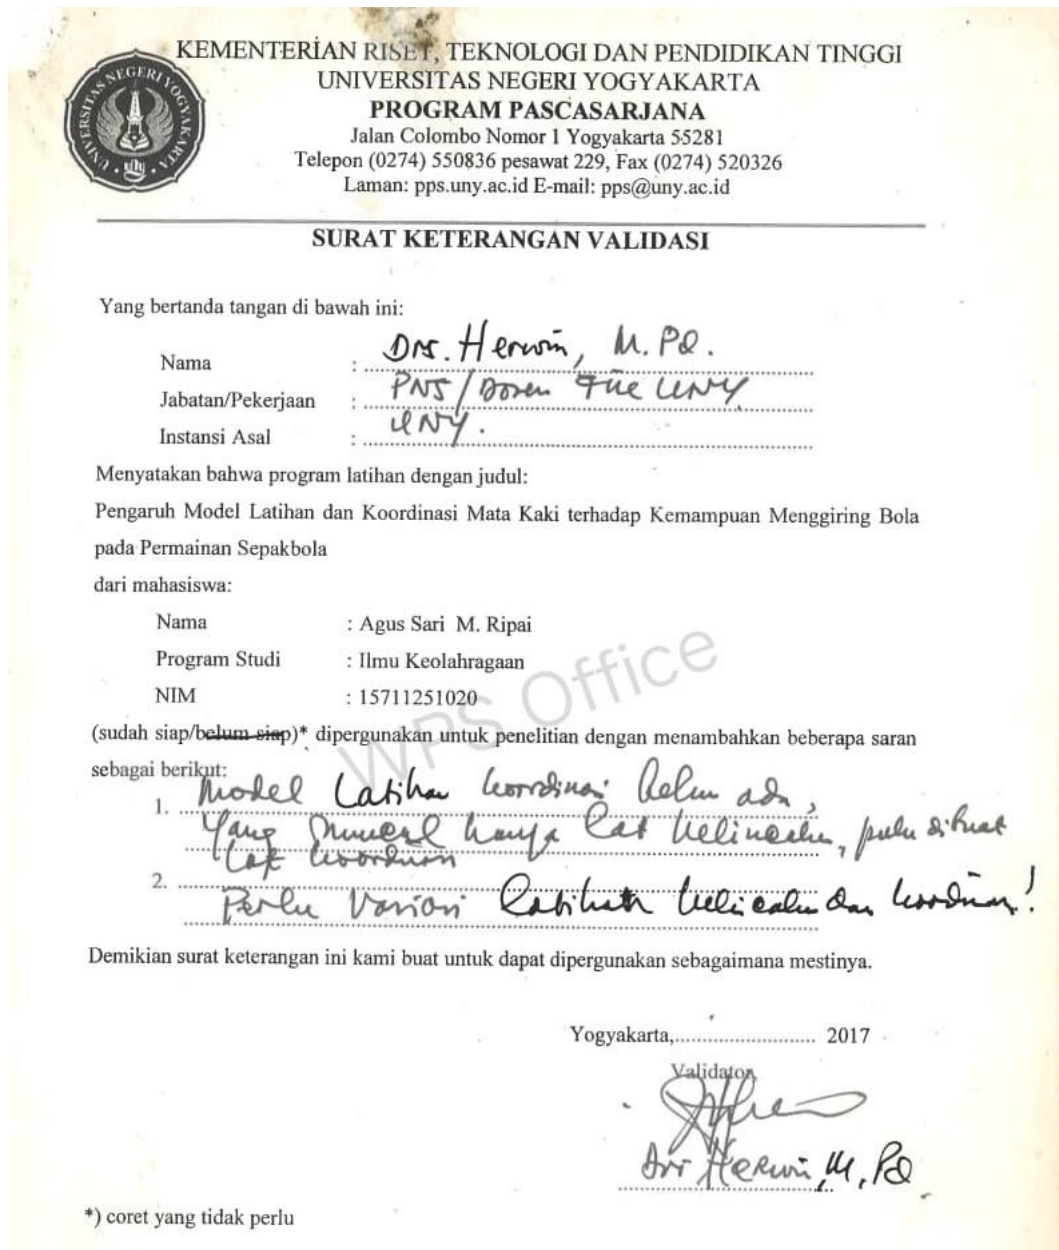 KEMENTERIAN RISET, TEKNOLOGI DAN PENDIDIKAN TINGGI
UNIVERSITAS NEGERI YOGYAKARTA
PROGRAM PASCASARJANA
Jalan Colombo Nomor 1 Yogyakarta 55281
Telepon (0274) 550836 pesawat 229, Fax (0274) 520326
Laman: pps.uny.ac.id E-mail: pps@uny.ac.id
UNIVERSITAS NEGERI YOGYAKARTA
SURAT KETERANGAN VALIDASI
Yang bertanda tangan di bawah ini:
Nama : Drs. Herwin, M.Pd.
Jabatan/Pekerjaan : PNS/Dosen UNY
Instansi Asal : UNY.
Menyatakan bahwa program latihan dengan judul:
Pengaruh Model Latihan dan Koordinasi Mata Kaki terhadap Kemampuan Menggiring Bola
pada Permainan Sepakbola
dari mahasiswa:
Nama : Agus Sari M. Ripai
Program Studi : Ilmu Keolahragaan
NIM : 15711251020
(sudah siap/belum siap)* dipergunakan untuk penelitian dengan menambahkan beberapa saran
sebagai berikut:
1. Model Latihan koordinasi belum ada,
Yang muncul hanya Lat kelincahan, perlu dibuat
Lat koordinasi
2. Perlu Variasi Latihan kelincahan dan koordinasi!
Demikian surat keterangan ini kami buat untuk dapat dipergunakan sebagaimana mestinya.
Yogyakarta,............................ 2017
Validator,
Drs Herwin, M.Pd
*) coret yang tidak perlu
WPS Office